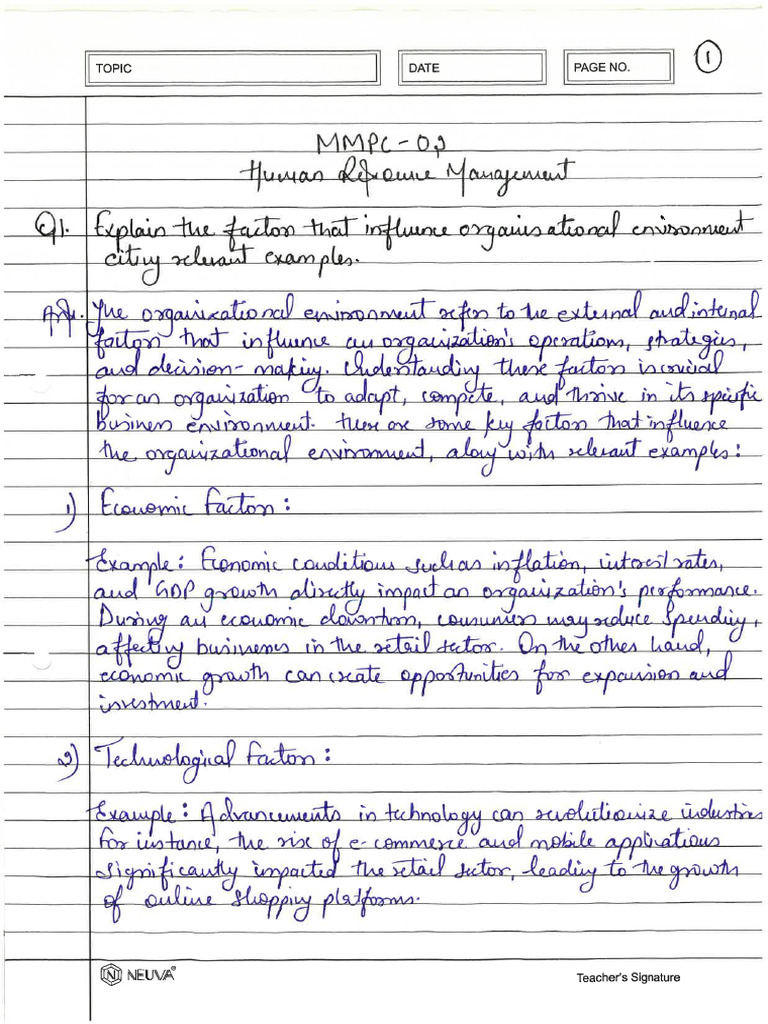 TOPIC
DATE
PAGE NO.
1
MMPC-02
Human Resource Management
Q1. Explain the factors that influence organisational environment
citing relevant examples.
Ans. The organizational environment refers to the external and internal
factors that influence an organization's operations, strategies,
and decision-making. Understanding these factors is crucial
for an organization to adapt, compete, and thrive in its specific
business environment. There are some key factors that influence
the organizational environment, along with relevant examples:
1) Economic Factors:
Example: Economic conditions such as inflation, interest rates,
and GDP growth directly impact an organization's performance.
During an economic downturn, consumers may reduce spending,
affecting businesses in the retail sector. On the other hand,
economic growth can create opportunities for expansion and
investment.
2) Technological Factors:
Example: Advancements in technology can revolutionize industries
for instance, the rise of e-commerce and mobile applications
significantly impacted the retail sector, leading to the growth
of online shopping platforms.
N NEUVA®
Teacher's Signature